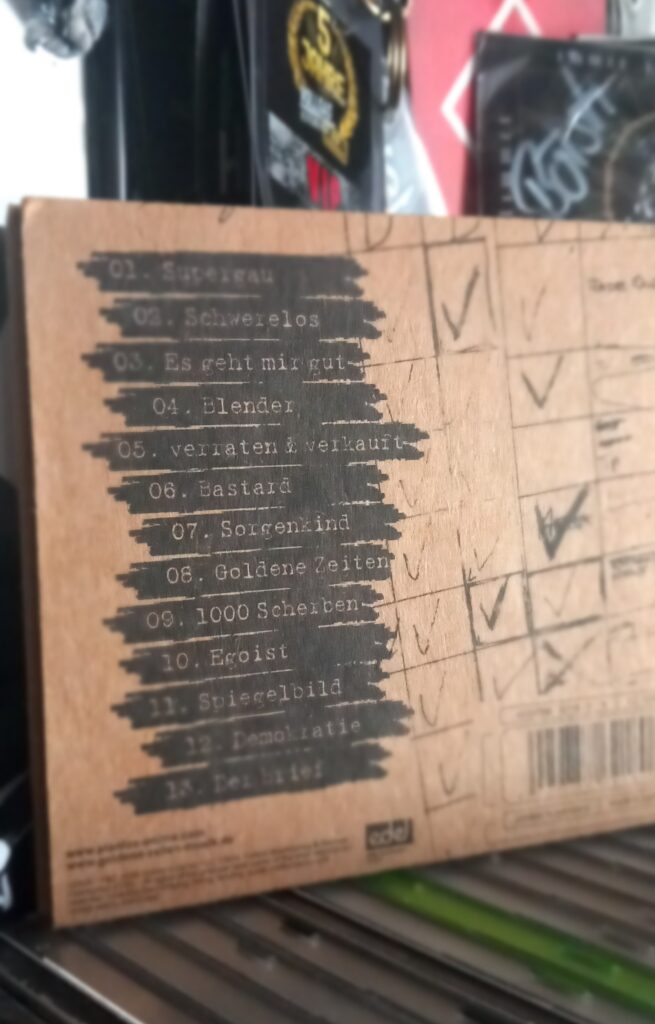 5
JAHRE
01. Supergau
02. Schwerelos
03. Es geht mir gut
04. Blender
05. verraten & verkauft
06. Bastard
07. Sorgenkind
08. Goldene Zeiten
09. 1000 Scherben
10. Egoist
11. Spiegelbild
12. Demokratie
13. Der brief
edel